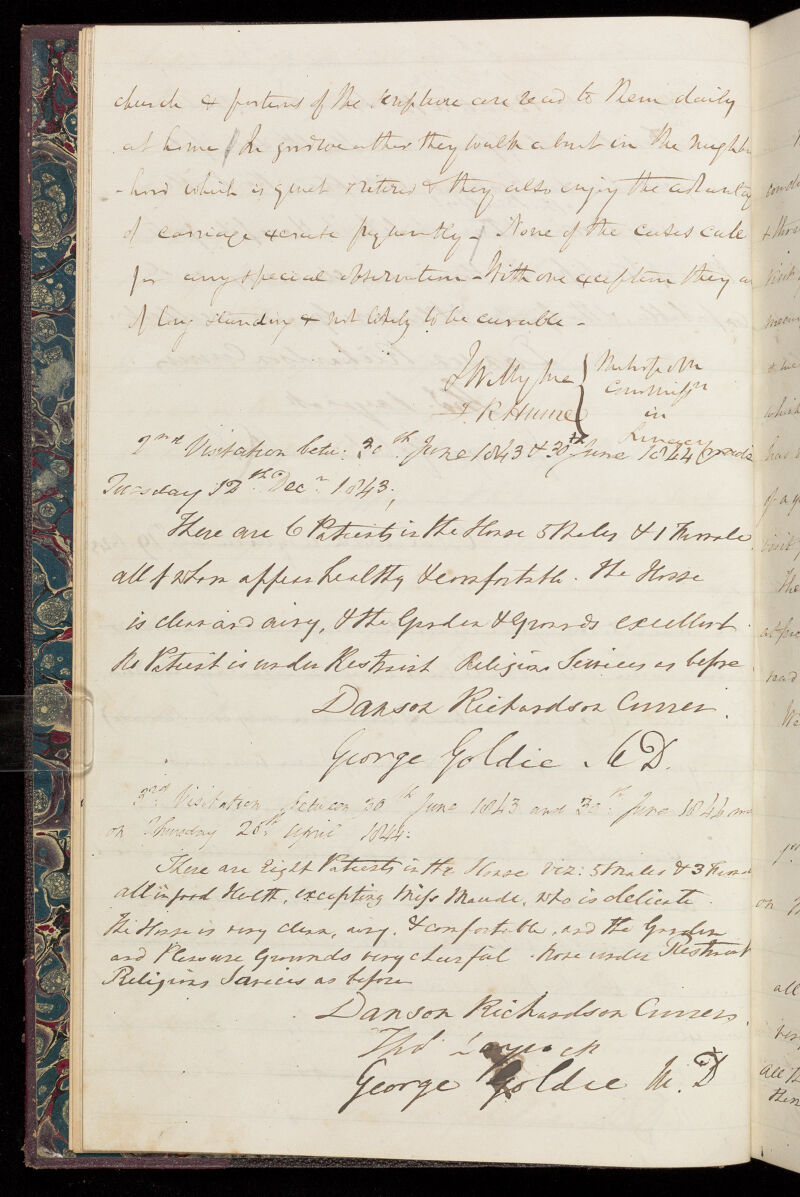 church & portions of the Scripture are read to them daily
at home / In good weather they walk about in the neighbor
-hood which is quiet & retired & they also enjoy the advantage
of carriage exercise frequently - / None of the cases call
for any special observation - With one exception they are
of long standing & not likely to be curable -
J W Mylne
J. R. Hume
Metropoln
Commissn
in
Lunacy
2nd Visitation betw: 30th June 1843 & 30th June 1844 (made
Tuesday 12th Decr 1843;
There are 6 Patients in the House 5 Males & 1 Female
all of whom appear healthy & comfortable. The House
is clean and airy, & the Garden & Grounds excellent.
No Patient is under Restraint Religious Services as before
Danson Richardson Currer.
George Goldie M D.
3rd Visitation between 30th June 1843 and 30th June 1844
on Thursday 25th April 1844:
There are Eight Patients in the House viz: 5 Males & 3 Females
all in good Health, excepting Miss Maude, who is delicate.
The House is very clean, airy, & comfortable, and the Garden
and Pleasure Grounds very cheerful. None under Restraint
Religious Services as before
Danson Richardson Currer.
Thos Laycock
George Goldie M. D